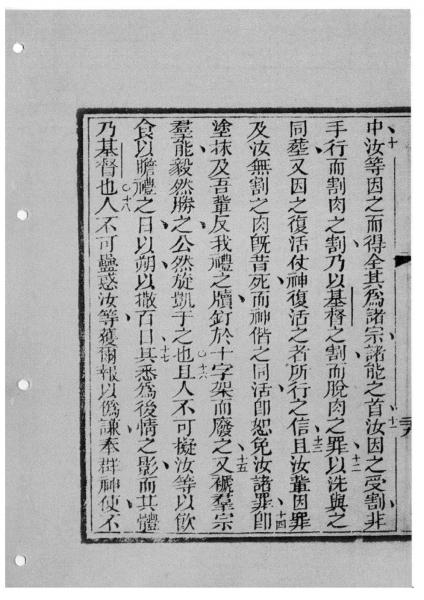 中汝等因之而得全其爲諸宗諸能之首汝因之受割非
手行而割肉之割乃以基督之割而脫肉之罪以洗與之
同塟又因之復活仗神復活之者所行之信且汝輩因罪
及汝無割之肉旣昔死而神偕之同活卽恕免汝諸罪卽
塗抹及吾輩反我禮之牘釘於十字架而廢之又褫羣宗
羣能毅然勝之公然旋凱于之也且人不可擬汝等以飲
食以瞻禮之日以朔以撒百日其悉爲後情之影而其體
乃基督也人不可蠱惑汝等獲爾報以僞謙奉群神使不
十
十一
十二
十三
十四
十五
十六
十七
十八